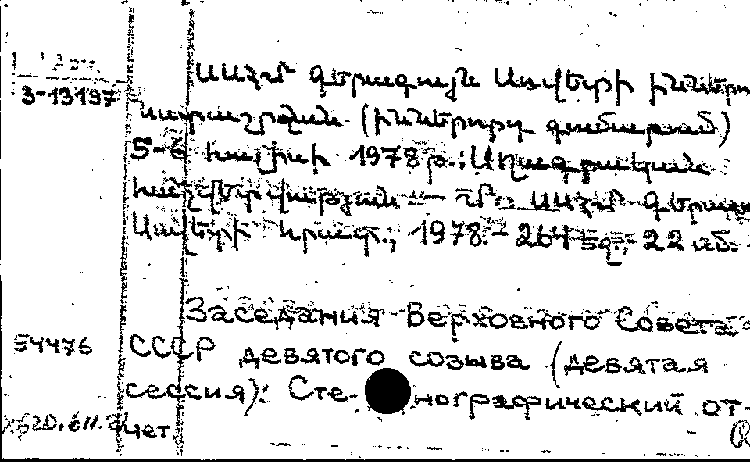 ՍՍՀՄ գերագույն Սովետի իններ
3-13197
նստաշրջան (իններորդ գումարում)
5-6 հուլիսի 1978 թ.: Սղագրական
հաշվետվություն — Մ.: ՍՍՀՄ գերագ
Սովետի հրատ., 1978.- 264 էջ., 22 սմ.
Заседания Верховного Совета
54476 СССР девятого созыва (девятая
сессия): Сте- нографический от-
чет